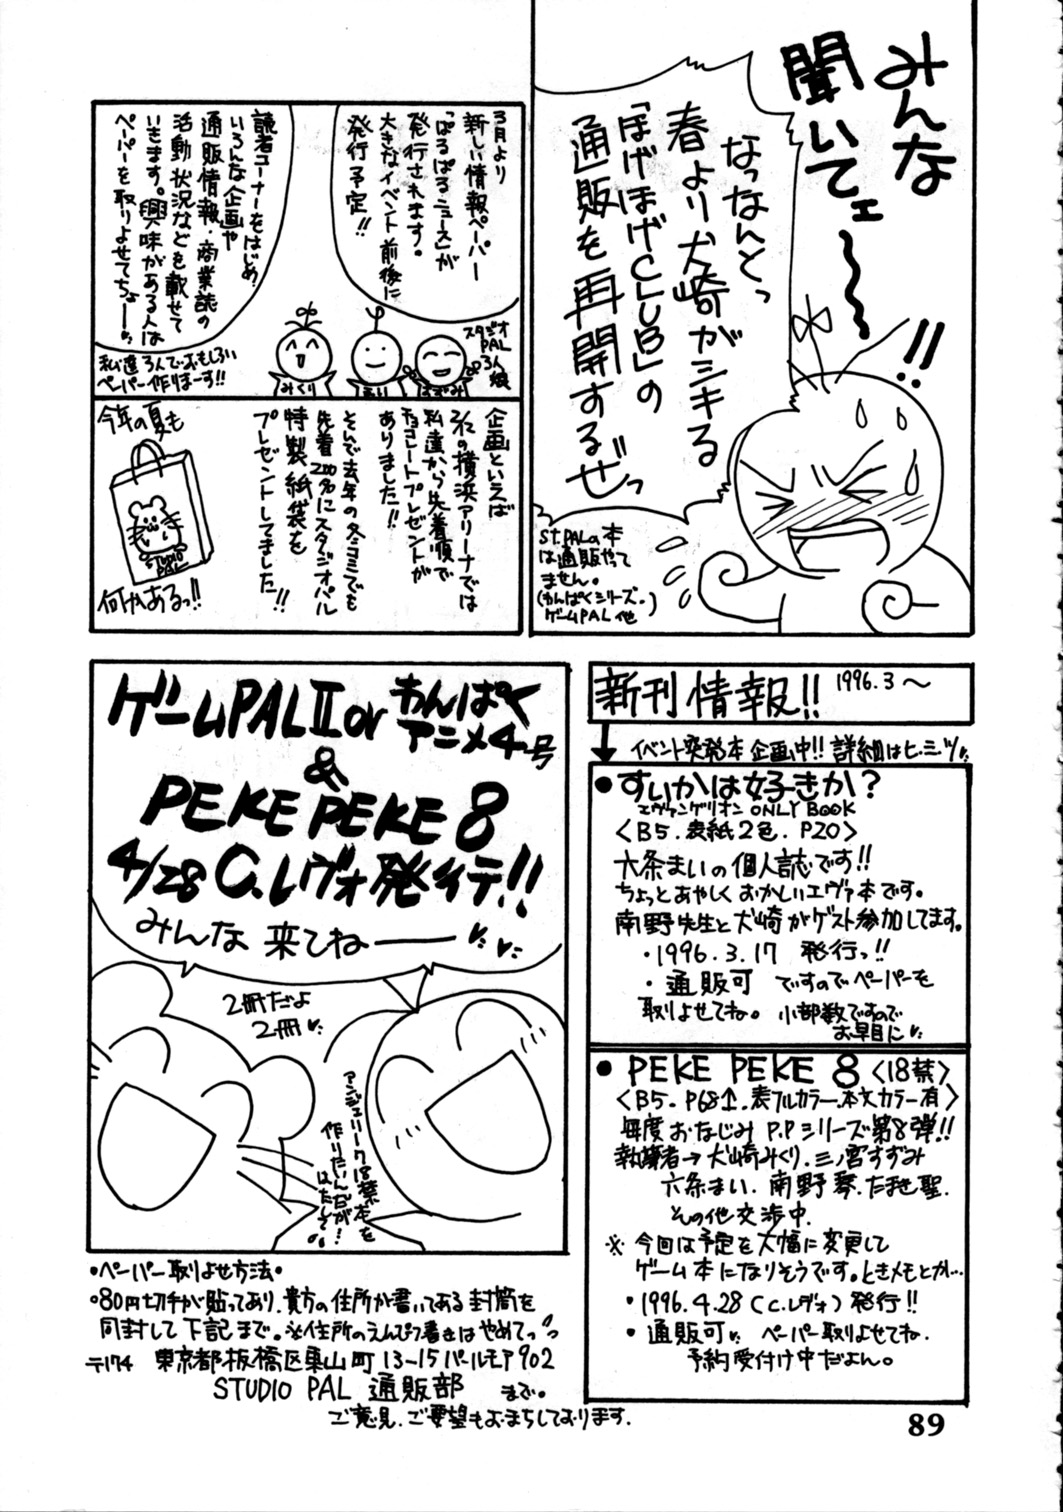 みんな
聞いてェ〜〜!!
なっなんとっ
春より犬崎がシキる
「ほげほげCLUB」の
通販を再開するぜっ
St.PALの本
は通販やって
ません。
(わんぱくシリーズ。
ゲームPAL他)
3月より
新しい情報ペーパー
「ぱるぱるニュース」が
発行されます。
大きなイベント前後に
発行予定!!
読者コーナーをはじめ、
いろんな企画や
通販情報、商業誌の
活動状況などを載せて
いきます。興味がある人は
ペーパーを取りよせてちょーー
スタジオ
PAL
3人娘
みくり
私達3人でおもしろい
ペーパー作りまーす!!
企画といえば
3/2の横浜アリーナでは
私達から先着順で
チョコレートプレゼントが
ありました!!
そんで去年の冬コミでも
先着200名にスタジオパル
特製紙袋を
プレゼントしてました!!
今年の夏も
STUDIO
PAL
何かあるっ!!
ゲームPALⅡor わんぱく
アニメ4号
&
PEKE PEKE 8
4/28 C.レヴォ発行デ!!
みんな 来てねーーー
2冊だよ
2冊
アンジェリーク18禁本を
作りたいんだが!
はたして。
新刊情報!! 1996.3〜
イベント突発本 企画中!! 詳細はヒ・ミツ
●すいかは好きか?
エヴァンゲリオン ONLY BOOK
〈B5.表紙2色.P20〉
六条まいの個人誌です!!
ちょっとあやしくおかしいエヴァ本です。
南野先生と犬崎がゲスト参加してます。
・1996.3.17 発行っ!!
・通販可 ですのでペーパーを
取りよせてね。 小部数ですので
お早目に
●PEKE PEKE 8〈18禁〉
〈B5.P68↑.表フルカラー.本文カラー有〉
毎度おなじみP.Pシリーズ第8弾!!
執筆者→犬崎みくり.三ノ宮すずみ
六条まい.南野琴.たませ聖.
その他交渉中.
※今回は予定を大幅に変更して
ゲーム本になりそうです。ときメモとか…
・1996.4.28(C.レヴォ)発行!!
・通販可 ペーパー取りよせてね.
予約受付け中だよん。
・ペーパー取りよせ方法・
・80円切手が貼ってあり.貴方の住所が書いてある封筒を
同封して下記まで。※住所のえんぴつ書きはやめてっっ
〒174 東京都板橋区東山町13-15パールモア902
STUDIO PAL 通販部 まで。
ご意見.ご要望もおまちしております.
89